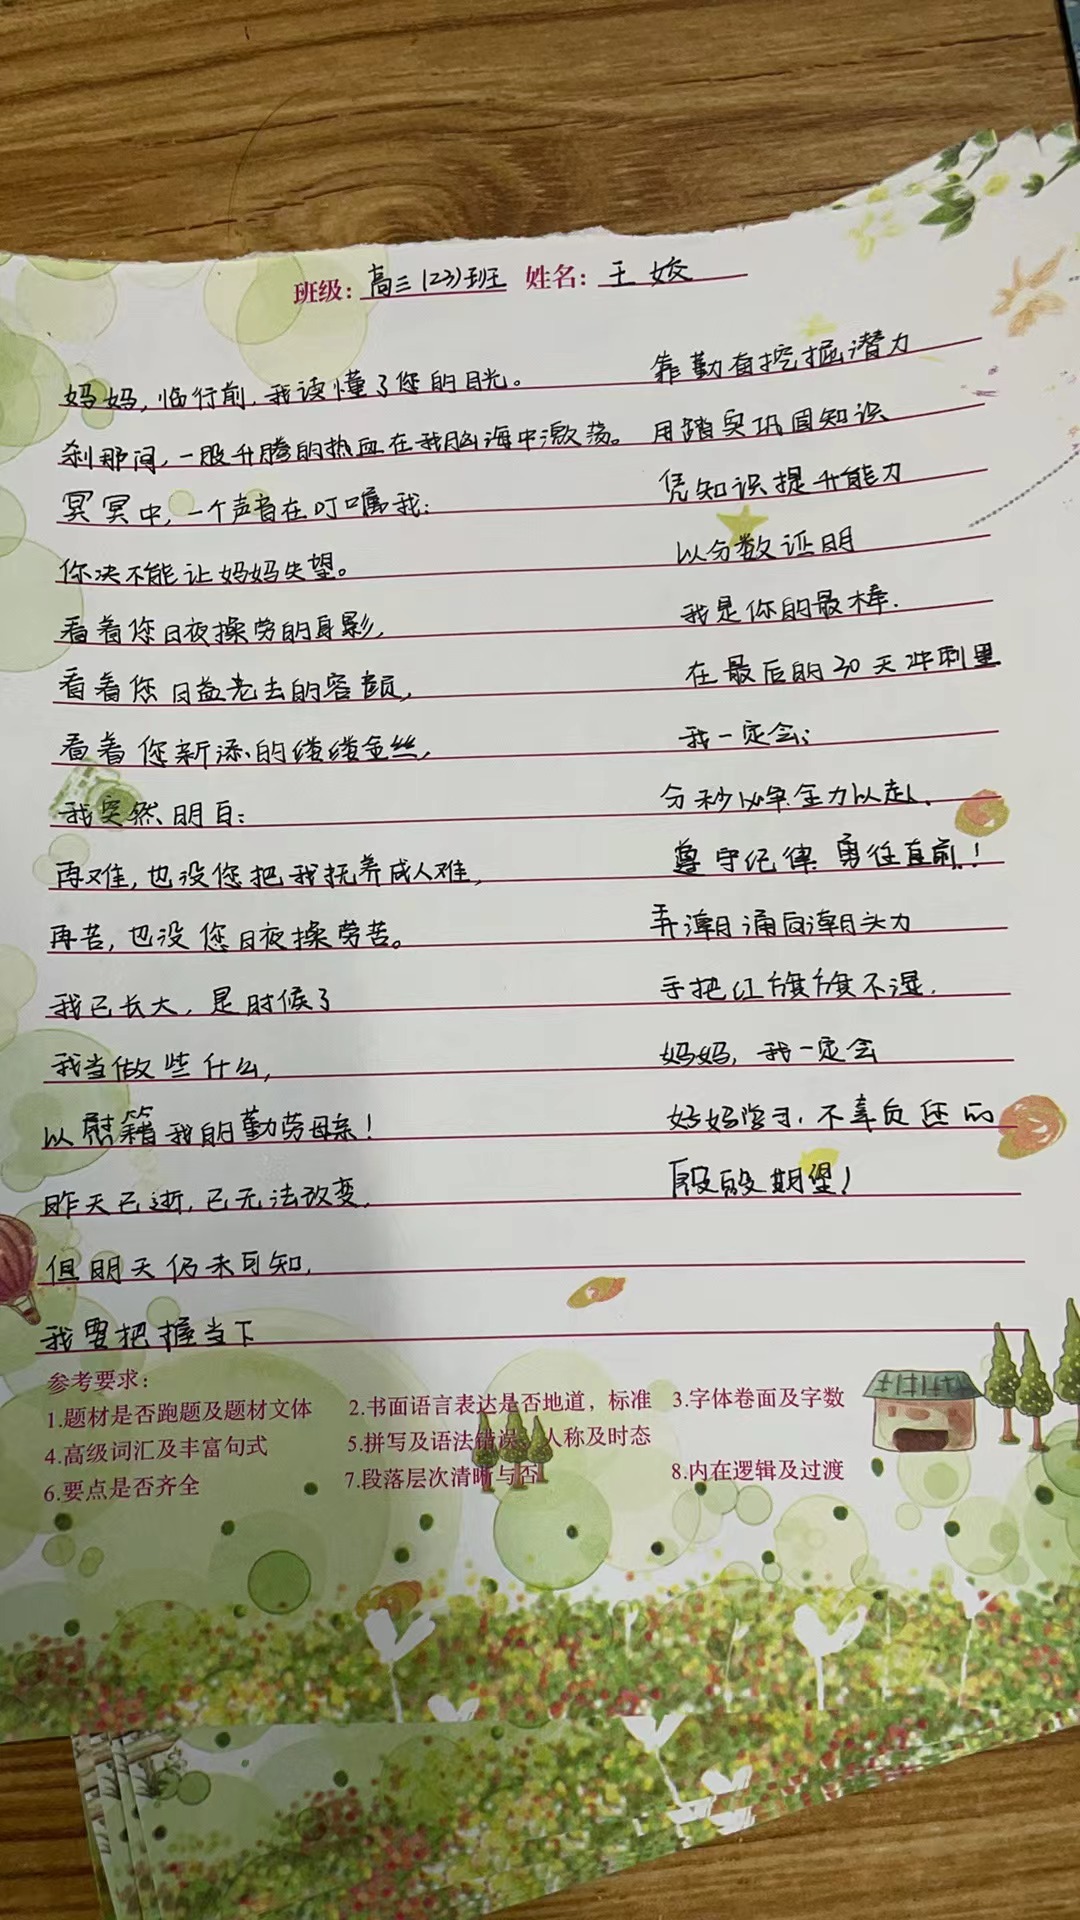 班级：高三(23)班 姓名：王姣
妈妈，临行前，我读懂了您的目光。
刹那间，一股升腾的热血在我脑海中激荡。
冥冥中，一个声音在叮嘱我：
你决不能让妈妈失望。
看着您日夜操劳的身影，
看着您日益老去的容颜，
看着您新添的缕缕金丝，
我突然明白：
再难，也没您把我抚养成人难，
再苦，也没您日夜操劳苦。
我已长大，是时候了
我当做些什么，
以慰籍我的勤劳母亲！
昨天已逝，已无法改变，
但明天仍未可知，
我要把握当下
靠勤奋挖掘潜力
用踏实巩固知识
凭知识提升能力
以分数证明
我是你的最棒．
在最后的30天冲刺里
我一定会：
分秒必争全力以赴．
遵守纪律 勇往直前！
弄潮涌向潮头力
手把红旗旗不湿．
妈妈，我一定会
好好学习，不辜负您的
殷殷期望！
参考要求：
1.题材是否跑题及题材文体 2.书面语言表达是否地道，标准 3.字体卷面及字数
4.高级词汇及丰富句式 5.拼写及语法错误、人称及时态
6.要点是否齐全 7.段落层次清晰与否 8.内在逻辑及过渡